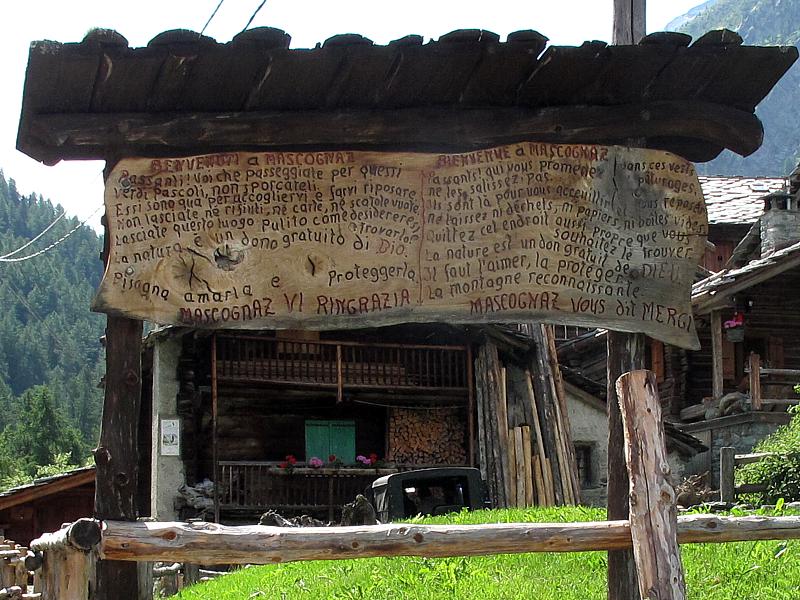 BENVENUTI a MASCOGNAZ
Passanti! Voi che passeggiate per questi
verdi Pascoli, non sporcateli.
Essi sono qua per accogliervi e farvi riposare
Non lasciate ne rifiuti, ne carte, ne scatole vuote
Lasciate questo luogo Pulito come desiderereste
trovarlo.
La natura è un dono gratuito di DIO.
Bisogna amarla e proteggerla
MASCOGNAZ VI RINGRAZIA
BIENVENUE a MASCOGNAZ
Passants! qui vous promenez dans ces verts
pâturages,
ne les salissez pas
ils sont là pour vous accueillir et vous reposer
ne laissez ni déchets, ni papiers, ni boîtes vides
Quittez cet endroit aussi propre que vous
souhaitez le trouver
La nature est un don gratuit de DIEU
Il faut l'aimer, la protéger
La montagne reconnaissante
MASCOGNAZ VOUS dit MERCI